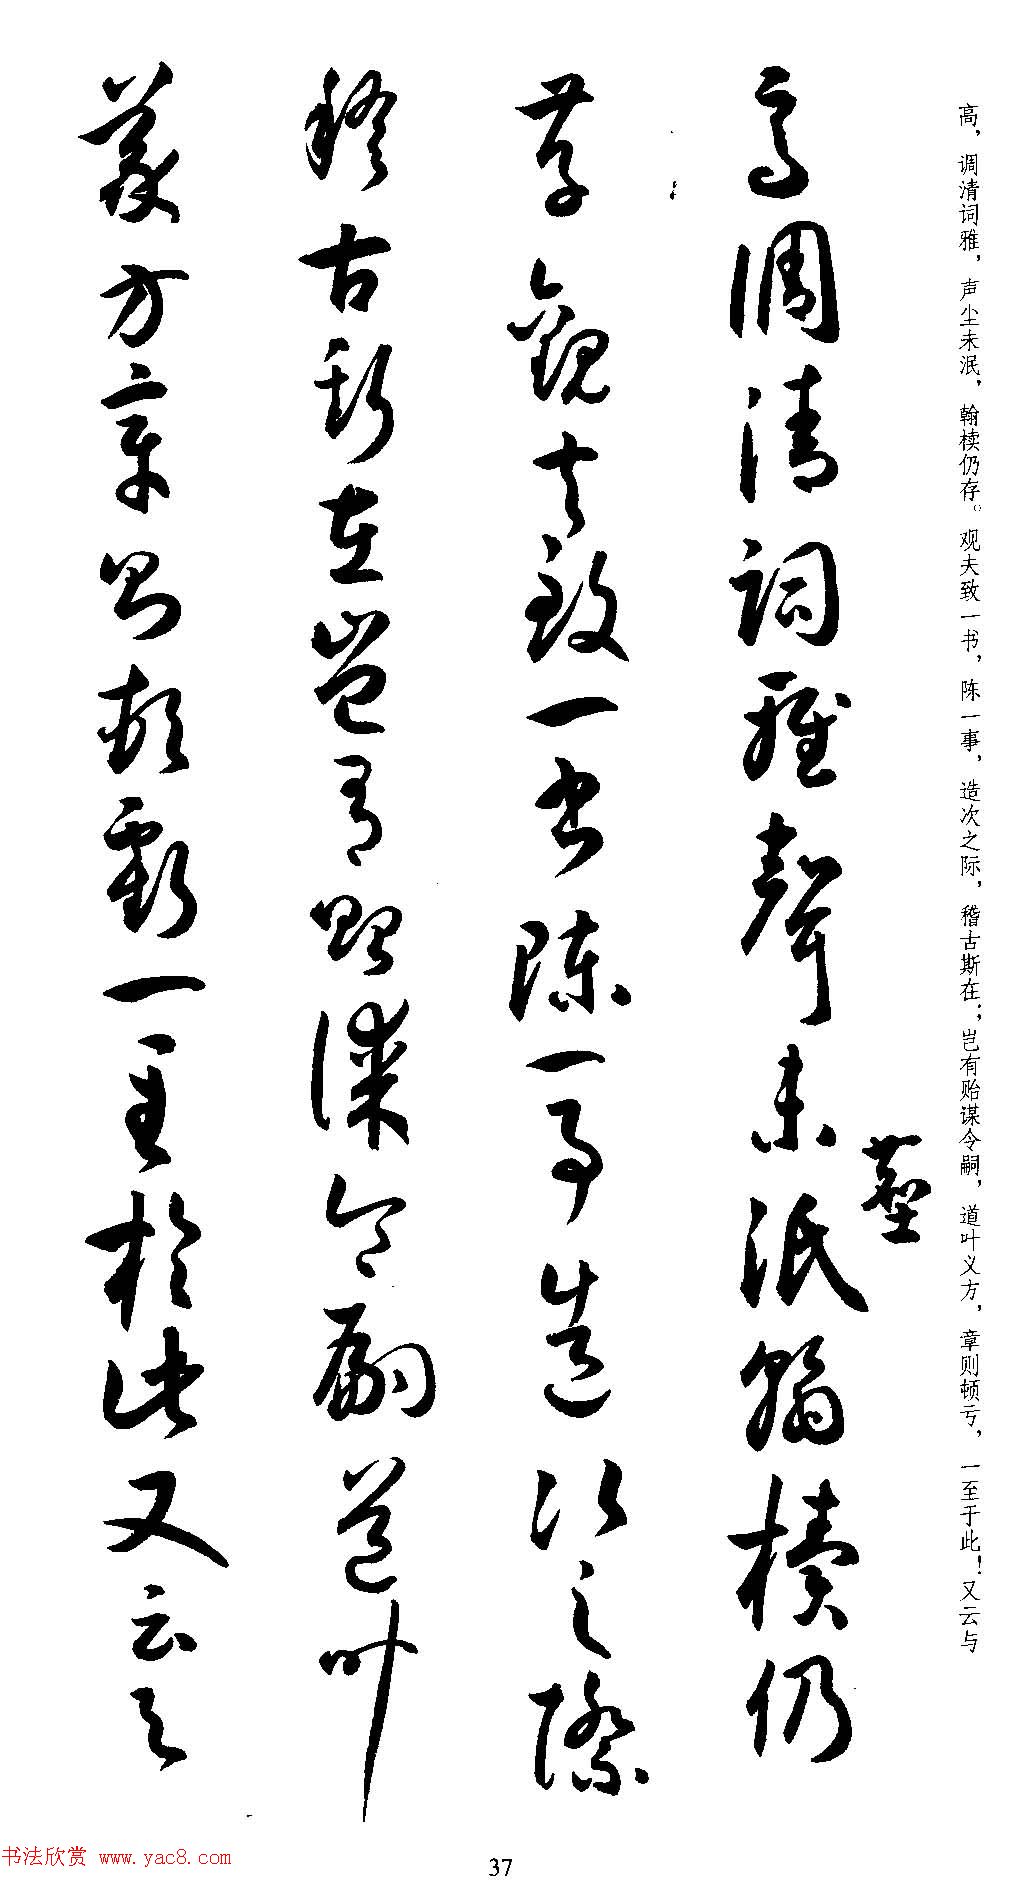 高，调清词雅，声尘未泯，翰椟仍存。观夫致一书，陈一事，造次之际，稽古斯在；岂有贻谋令嗣，道叶义方，章则顿亏，一至于此！又云与
塵
高調清詞雅聲未泯翰櫝仍
存觀夫致一書陳一事造次之際
稽古斯在豈有貽謀令嗣道叶
義方章則頓虧一至於此又云与
书法欣赏 www.yac8.com
37